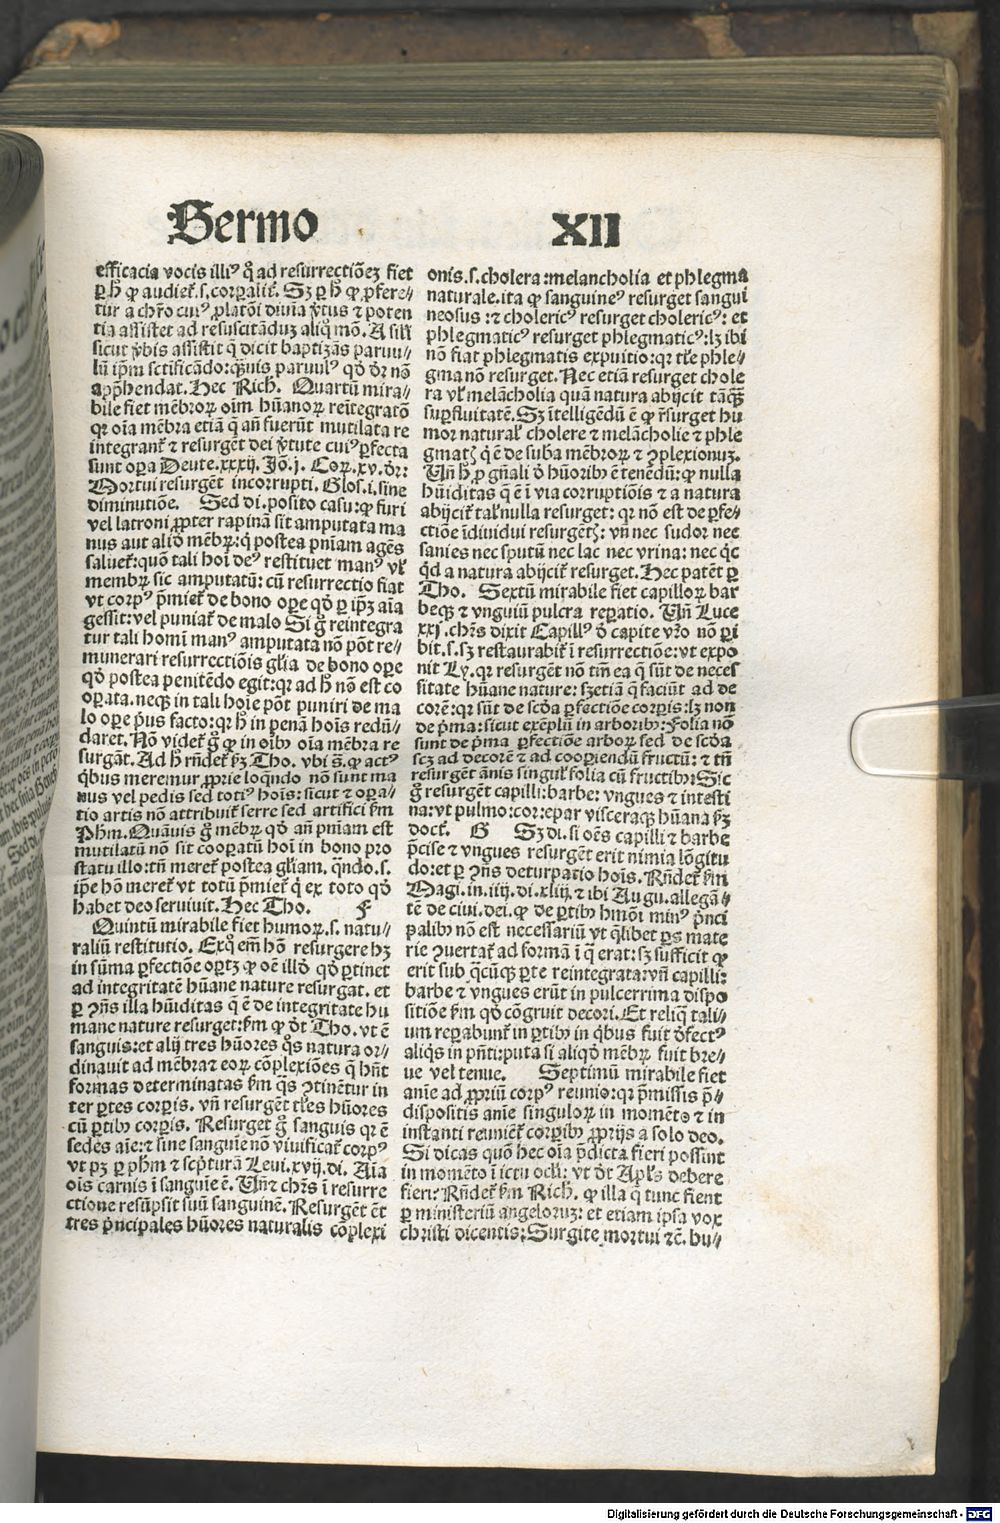 Sermo XII
efficacia vocis illiꝰ q̊ ad resurrectiõeꝫ fiet
ꝑ h̃ ꝙ audieť.s.corꝑaliť. Sꝫ ꝑ h̃ ꝙ ꝓfere⸗
tur a chr̃o cuiꝰ ꝓlatõi diuia ṽtus ⁊ poten
tia assistet ad resuscitãduꝫ aliq̃ mõ. A sil̃i
sicut ṽbis assistit q̃ dicit baptizãs paruu⸗
lũ ip̃m sctificãdo:q̃uis paruulꝰ qđ đr nõ
app̃hendat. Hec Rich. Quartũ mira⸗
bile fiet mẽbroꝝ oĩm hũanoꝝ reĩtegratõ
qꝛ oĩa mẽbra etiã q̃ añ fuerũt mutilata re
integranť ⁊ resurgẽt dei ṽtute cuiꝰ ꝑfecta
sunt oꝑa Deute.xxxij. Jõ.j. Coꝝ.xv.đr:
Mortui resurgẽt incorrupti. Glos.i.sine
diminutiõe. Sed di.posito casu:ꝙ furi
vel latroni ꝓpter rapinã sit amputata ma
nus aut aliđ mẽbꝝ:q̃ postea pñiam agẽs
salueť:quõ tali hoĩ deꝰ restituet manꝰ vl̃
membꝝ sic amputatũ: cũ resurrectio fiat
vt corpꝰ p̃mieť de bono oꝑe qđ ꝑ ip̃ꝫ aĩa
gessit:vel puniať de malo Si g̃ reintegra
tur tali homĩ manꝰ amputata nõ põt re⸗
munerari resurrectiõis gľia de bono oꝑe
qđ postea penitẽdo egit:qꝛ ad h̃ nõ est co
oꝑata.neqꝫ in tali hoĩe põt puniri de ma
lo oꝑe p̃us facto:qꝛ h̃ in penã hoĩs redũ⸗
daret. Nõ videť g̃ ꝙ in oĩbꝰ oĩa mẽbra re
surgãt. Ad h̃ rñdeť ẜꝫ Tho. vbi s̃.ꝙ actꝰ
q̃bus meremur ꝓprie loq̃ndo nõ sunt ma
nus vel pedis sed totiꝰ hoĩs: sicut ⁊ oꝑa⸗
tio artis nõ attribuiť serre sed artifici ẜm
Phm. Quãuis g̃ mẽbꝝ qđ añ pñiam est
mutilatũ nõ sit cooꝑatũ hoĩ in bono pro
statu illo:tñ mereť postea gľiam. qñdo.s.
ip̃e hõ mereť vt totũ p̃mieť q̃ ex toto qđ
habet deo seruiuit. Hec Tho. F
Quintũ mirabile fiet humoꝝ.s. natu⸗
raliũ restitutio. Exq̊ em̃ hõ resurgere hꝫ
in sũma ꝑfectiõe oꝑtꝫ ꝙ oẽ illđ qđ ꝑtinet
ad integritatẽ hũane nature resurgat. et
ꝑ ꝯñs illa hũiditas q̃ ẽ de integritate hu
mane nature resurget:ẜm ꝙ đt Tho. vt ẽ
sanguis:et alij tres hũores q̊s natura or⸗
dinauit ad mẽbra⁊ eoꝝ cõplexiões q̃ hñt
formas determinatas ẜm q̃s ꝯtinẽtur in
ter ꝑtes corꝑis. vñ resurgẽt tľes hũores
cũ ꝑtibꝰ corꝑis. Resurget g̃ sanguis qꝛ ẽ
sedes aĩe:⁊ sine sanguĩe nõ viuificať corpꝰ
vt pꝫ ꝑ phm ⁊ scp̃turã Leui.xvij.di. Aĩa
oĩs carnis ĩ sanguĩe ẽ. Vñ⁊ chr̃s ĩ resurre
ctione resũpsit suũ sanguinẽ. Resurgẽt ẽt
tres p̃ncipales hũores naturalis cõplexi
onis.s.cholera:melancholia et phlegma
naturale.ita ꝙ sanguineꝰ resurget sangui
neosus :⁊ cholericꝰ resurget cholericꝰ: et
phlegmaticꝰ resurget phlegmaticꝰ:lꝫ ibi
nõ fiat phlegmatis expuitio:qꝛ tľe phle⸗
gma nõ resurget. Nec etiã resurget chole
ra vl̃ melãcholia quã natura abijcit tãq̃ꝫ
suꝑfluitatẽ. Sꝫ ĩtelligẽdũ ẽ ꝙ r̃surget hu
mor naturaľ cholere ⁊ melãcholie ⁊ phle
gmatꝭ q̃ ẽ de suba mẽbroꝝ ⁊ ꝯplexionuꝫ.
Vñ h̃ ꝓ gñali đ hũoribꝰ ẽ tenẽdũ:ꝙ nulla
hũiditas q̃ ẽ ĩ via corruptiõis ⁊ a natura
abijciť taľ nulla resurget: qꝛ nõ est de ꝑfe⸗
ctiõe ĩdiuidui resurgẽtꝭ: vñ nec sudor nec
sanies nec sputũ nec lac nec vrina: nec q̃c
q̃d a natura abijciť resurget. Hec patẽt ꝑ
Tho. Sextũ mirabile fiet capilloꝝ bar
beqꝫ ⁊ vnguiũ pulcra reꝑatio. Vñ Luce
xxj.chr̃s dixit Capillꝰ đ capite vr̃o nõ ꝑi
bit.s.sꝫ restaurabiť ĩ resurrectiõe:vt expo
nit Ly. qꝛ resurgẽt nõ tm̃ ea q̃ sũt de neces
sitate hũane nature: sꝫetiã q̃ faciũt ad de
corẽ:qꝛ sũt de scđa ꝑfectiõe corꝑis:lꝫ non
de p̃ma:sicut exẽplũ in arboribꝰ:Folia nõ
sunt de p̃ma ꝑfectiõe arboꝝ sed de scđa
scꝫ ad decorẽ ⁊ ad cooꝑiendũ fructũ: ⁊ tñ
resurgẽt ãnis singuľ folia cũ fructibꝰ:Sic
g̃ resurgẽt capilli:barbe: vngues ⁊ intesti
na:vt pulmo:cor:epar visceraqꝫ hũana ẜꝫ
docť. G Sꝫ di.si oẽs capilli ⁊ barbe
p̃cise ⁊ vngues resurgẽt erit nimia lõgitu
do:et ꝑ ꝯñs deturpatio hoĩs. Rñdeť ẜm
Magi.in.iiij.di.xliiij.⁊ ibi Augu.allegã⸗
tẽ de ciui.dei.ꝙ de ꝑtibꝰ hmõi minꝰ p̃nci
palibꝰ nõ est necessariũ vt q̃libet ꝑs mate
rie ꝯuertať ad formã ĩ q̃ erat:sꝫ sufficit ꝙ
erit sub q̃cũqꝫ ꝑte reintegrata:vñ capilli:
barbe ⁊ vngues erũt in pulcerrima dispo
sitiõe ẜm qđ cõgruit decori. Et reliq̃ tali⸗
um reꝑabunť in ꝑtibꝰ in q̃bus fuit đfectꝰ
aliq̃s in pñti:puta si aliqđ mẽbꝝ fuit bre⸗
ue vel tenue. Septimũ mirabile fiet
anĩe ad ꝓpriũ corpꝰ reunio:qꝛ p̃missis p̃⸗
dispositis anĩe singuloꝝ in momẽto ⁊ in
instanti reunieť corꝑibꝰ ꝓprijs a solo deo.
Si dicas quõ hec oĩa p̃dicta fieri possint
in momẽto ĩ ictu oculi: vt đt Apľs debere
fieri: Rñdeť ẜm Rich. ꝙ illa q̃ tunc fient
ꝑ ministeriũ angeloruꝫ: et etiam ipsa vox
christi dicentis:Surgite mortui ⁊c. hu⸗
Digitalisierung gefördert durch die Deutsche Forschungsgemeinschaft - DFG